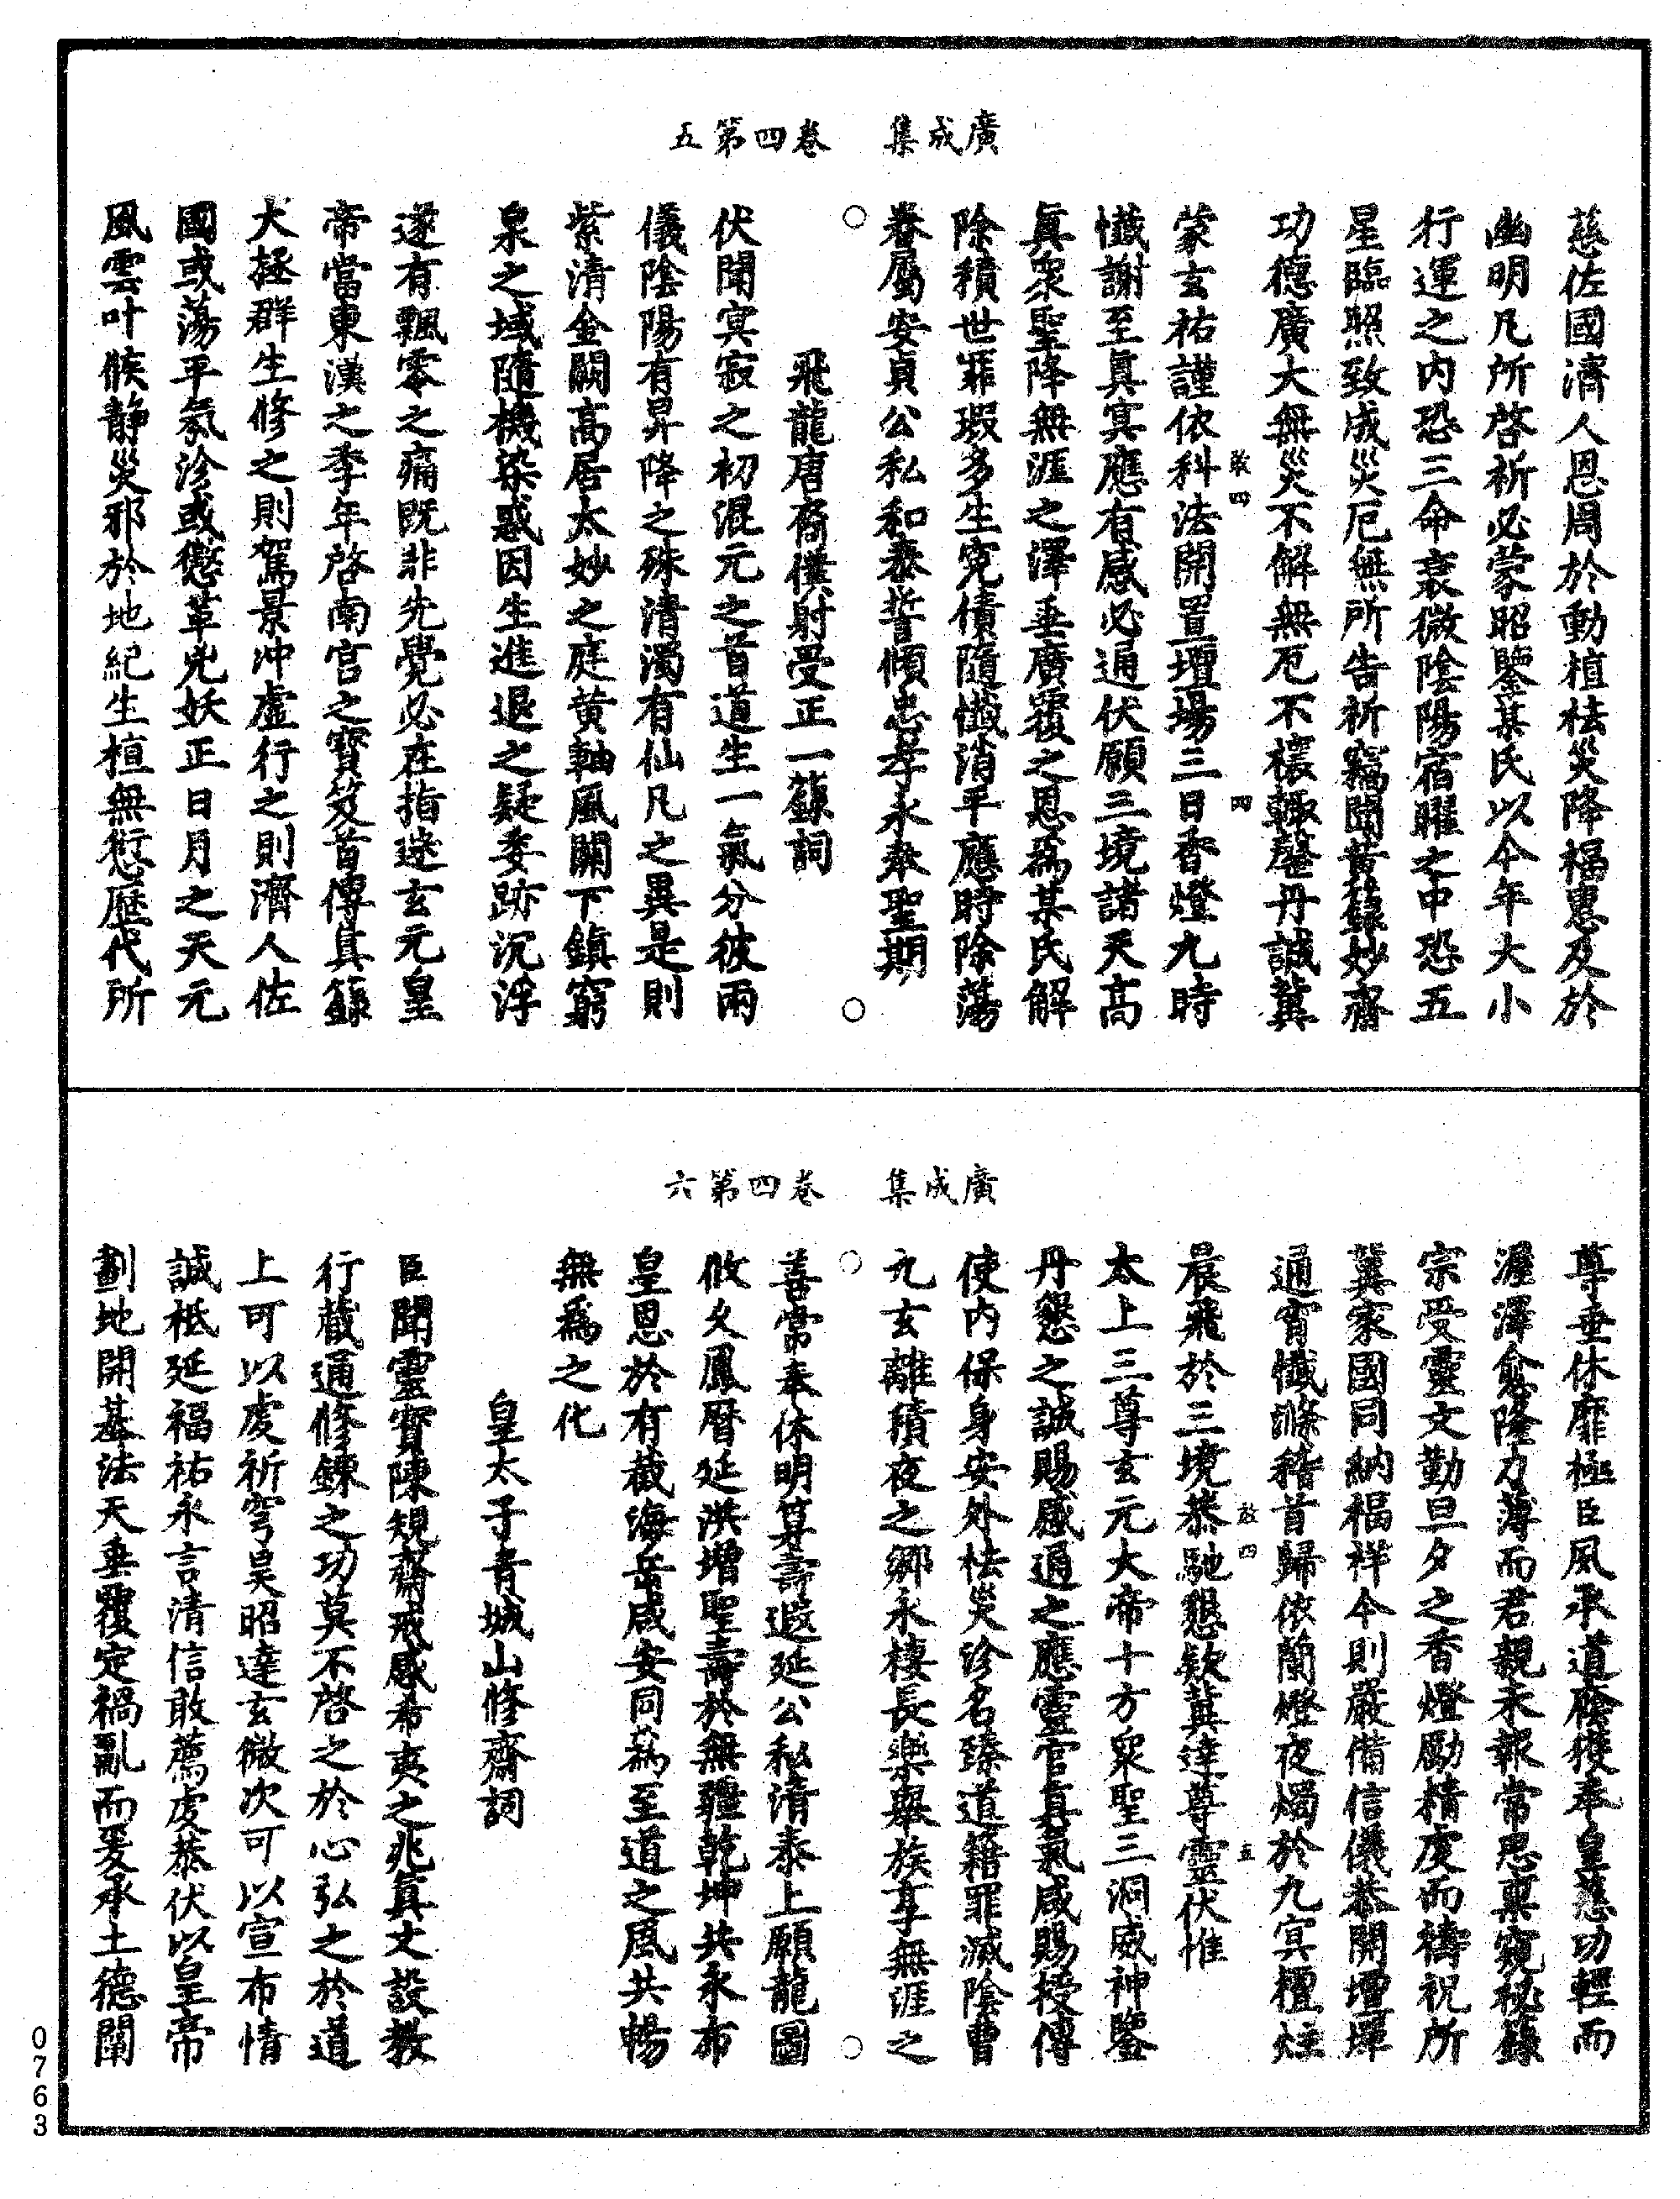 廣成集　卷四第五
慈佐國濟人恩周於動植袪災降福惠及於
幽明凡所啓祈必蒙昭鑒某氏以今年大小
行運之内恐三命衰微陰陽宿曜之中恐五
星臨照致成災厄無所告祈竊聞黄籙妙齋
功德廣大無災不解無厄不禳輙罄丹誠冀
敢四　四
蒙玄祐謹依科法開置壇場三日香燈九時
懺謝至真冥應有感必通伏願三境諸天髙
真衆聖降無涯之澤垂廣覆之恩為某氏解
除積世罪瑕多生寃債隨懺消平應時除蕩
眷屬安貞公私和泰誓傾忠孝永奉聖期
飛龍唐裔僕射受正一籙詞
伏聞冥寂之初混元之首道生一氣分彼兩
儀陰陽有昇降之殊清濁有仙凡之異是則
紫清金闕髙居太妙之庭黄軸風關下鎮窮
泉之域隨機染惑因生進退之疑委跡沉浮
遂有飄零之痛既非先覺必在指迷玄元皇
帝當東漢之季年啓南宫之寳笈首傳真籙
大拯群生修之則駕景冲虚行之則濟人佐
國或蕩平氛沴或懲革兇妖正日月之天元
風雲叶候静災邪於地紀生植無愆歷代所
廣成集　卷四第六
尊垂休靡極臣夙承道廕獲奉皇慈功輕而
渥澤愈隆力薄而君親未報常思稟窺祕籙
宗受靈文勤旦夕之香燈勵精䖍而禱祝所
冀家國同納福祥今則嚴備信儀恭開壇墠
通宵懺滌稽首歸依蘭燈夜燭於九冥檀炷
敢四　五
晨飛於三境恭馳懇欵冀達尊靈伏惟
太上三尊玄元大帝十方衆聖三洞威神鑒
丹懇之誠賜感通之應靈官真氣咸賜授傳
使内保身安外袪災沴名臻道籍罪滅陰曹
九玄離積夜之鄉永棲長樂舉族享無涯之
善常奉休明算壽遐延公私清泰上願龍圖
攸久鳳曆延洪增聖壽於無疆乾坤共永布
皇恩於有截海岳咸安同為至道之風共暢
無為之化
皇太子青城山修齋詞
臣聞靈寳陳規齋戒感希夷之兆真文設教
行藏通修鍊之功莫不啓之於心弘之於道
上可以䖍祈穹昊昭達玄微次可以宣布情
誠祗延福祐永言清信敢薦䖍恭伏以皇帝
劃地開基法天垂覆定禍亂而爰承土德闡
0763